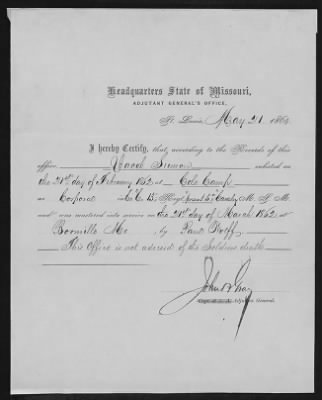 Headquarters State of Missouri,
ADJUTANT GENERAL'S OFFICE,
St. Louis, May 21 1864
I hereby Certify, that, according to the Records of this
office, Jacob enlisted on
the 21st day of February 1862 at Cole Camp
as Corporal in Co. "B" Cavalry M. S. M.
and was mustered into service on the day of March 1862 at
Mo by Paul
This Office is not advised of the Soldiers death
John B Gray
Adjutant General.